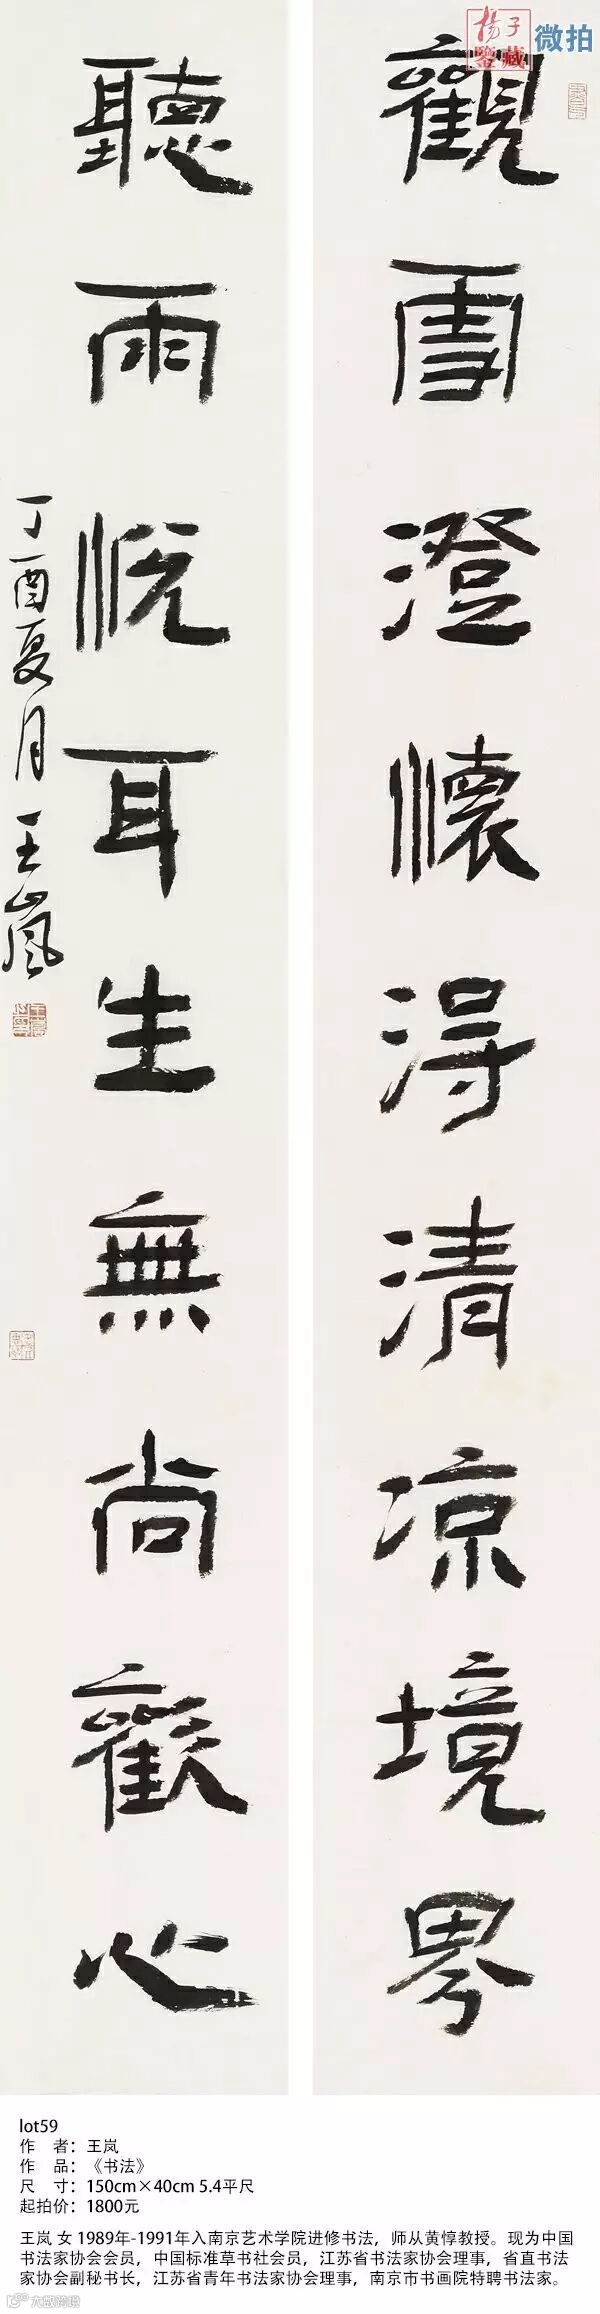 楊子
鑒藏
微拍
觀雪澄懷淂清凉境界
聽雨悦耳生無尚歡心
丁酉夏月王嵐
lot59
作 者：王岚
作 品：《书法》
尺 寸：150cm×40cm 5.4平尺
起拍价：1800元
王岚 女 1989年-1991年入南京艺术学院进修书法，师从黄惇教授。现为中国
书法家协会会员，中国标准草书社会员，江苏省书法家协会理事，省直书法
家协会副秘书长，江苏省青年书法家协会理事，南京市书画院特聘书法家。
大众易藏